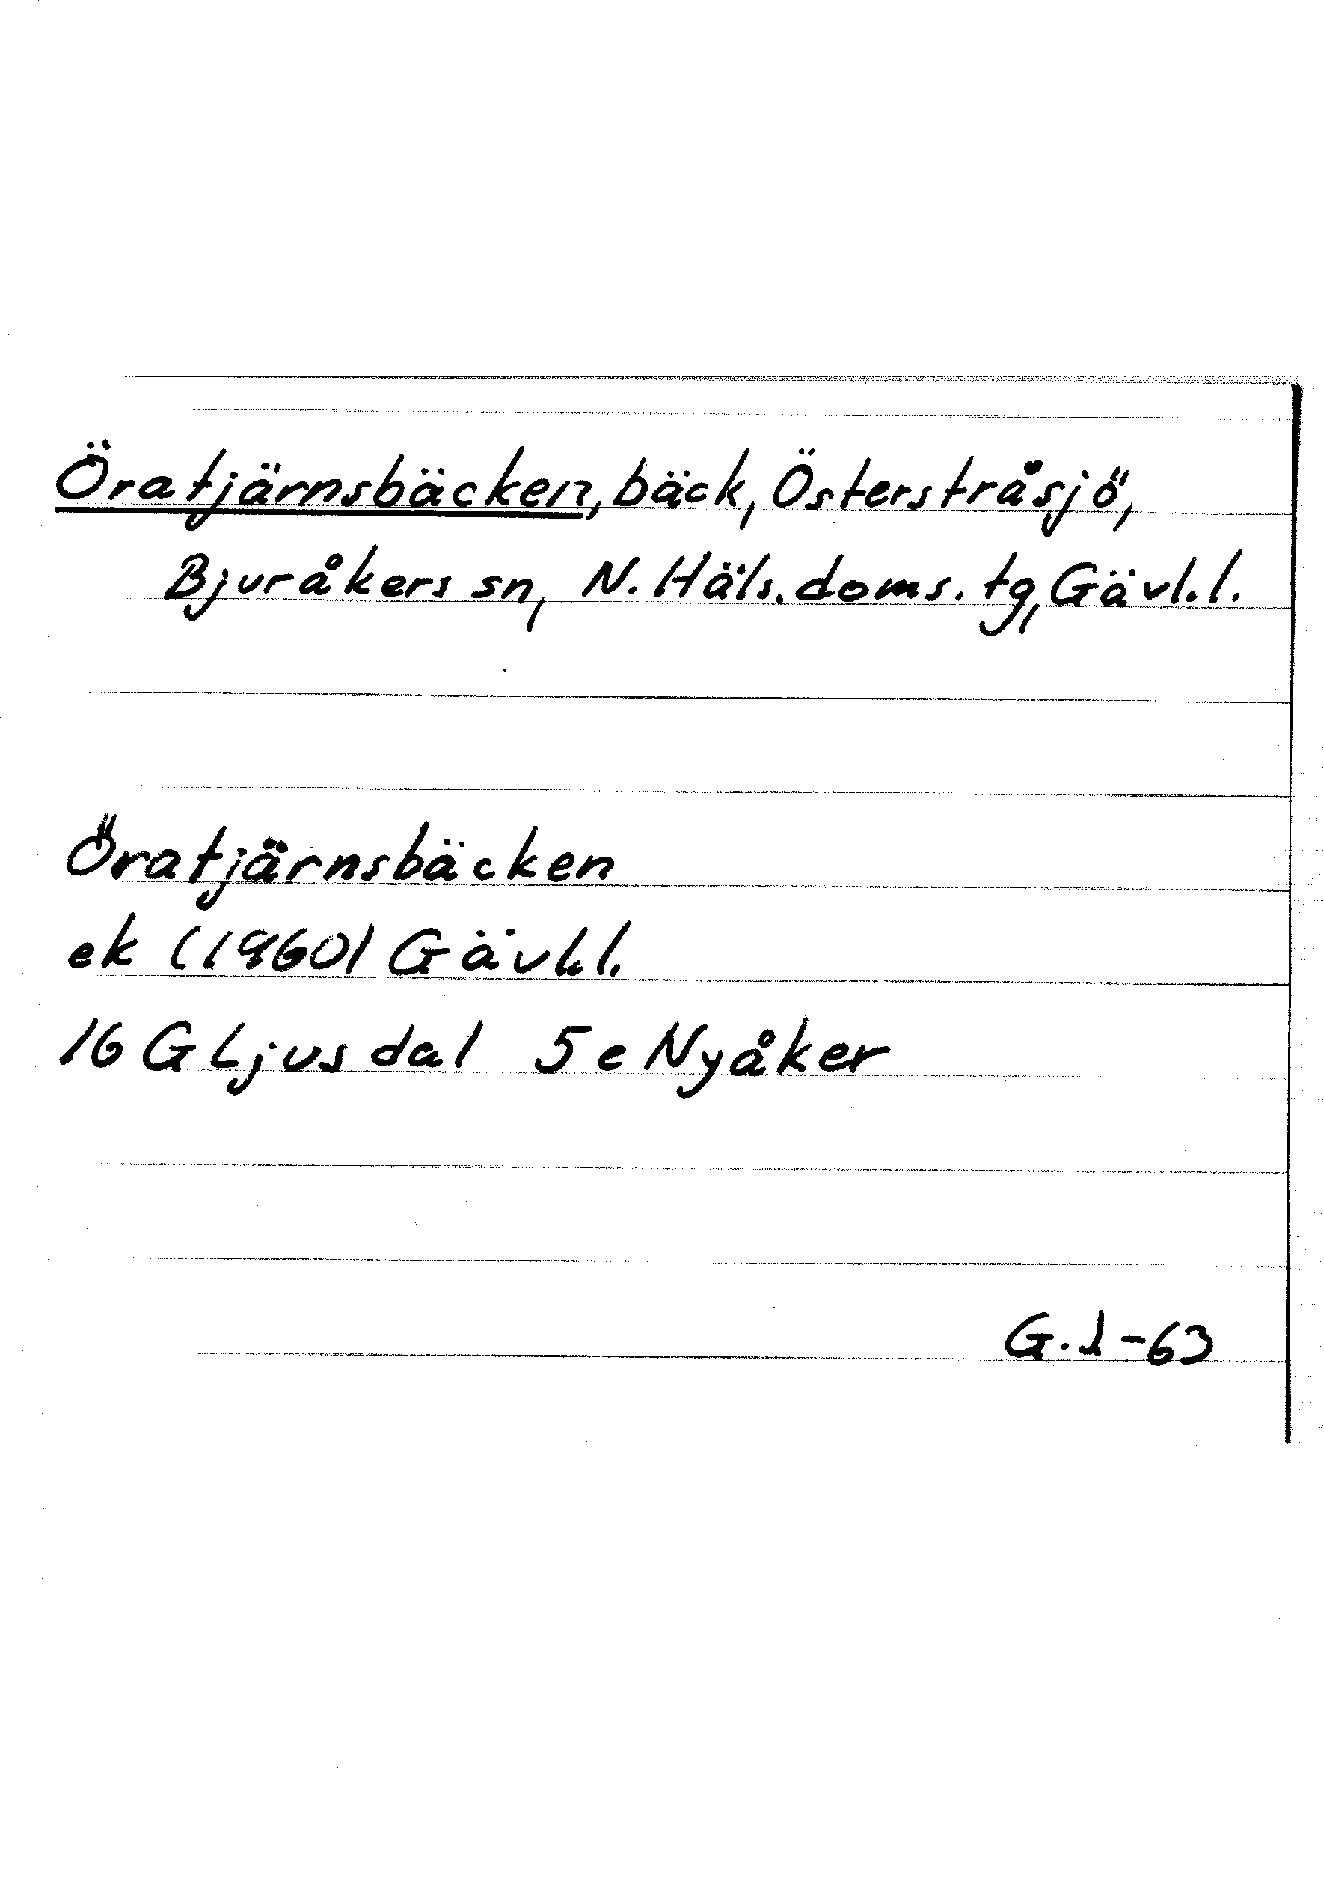 Öratjärnsbäcken, bäck, Östersträsjö,
Bjuråkers sn, N. Häls. doms. tg, Gävl. l.
Öratjärnsbäcken
ek (1960) Gävl. l.
16 G Ljusdal 5 e Nyåker
G. 1-63